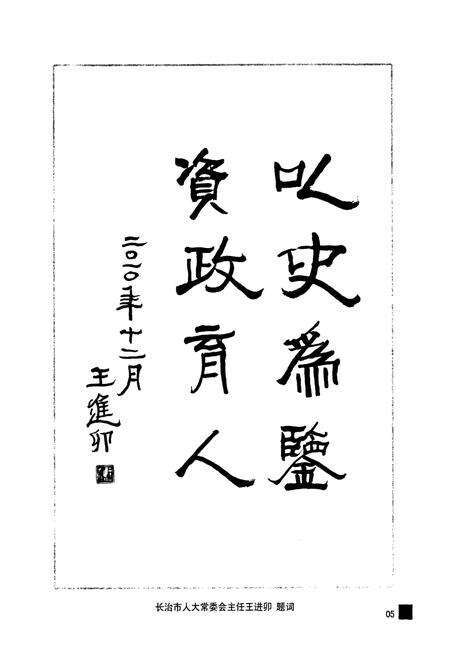 以史為鑒
資政育人
二〇一〇年十二月
王進卯
长治市人大常委会主任王进卯 题词
05